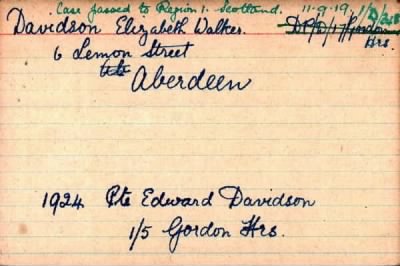 Case passed to Region 1. Scotland. 11-9-19. 1/D/218
Davidson Elizabeth Walker. Gordon
Hrs.
6 Lemon Street
Aberdeen
1924 Pte Edward Davidson
1/5 Gordon Hrs.